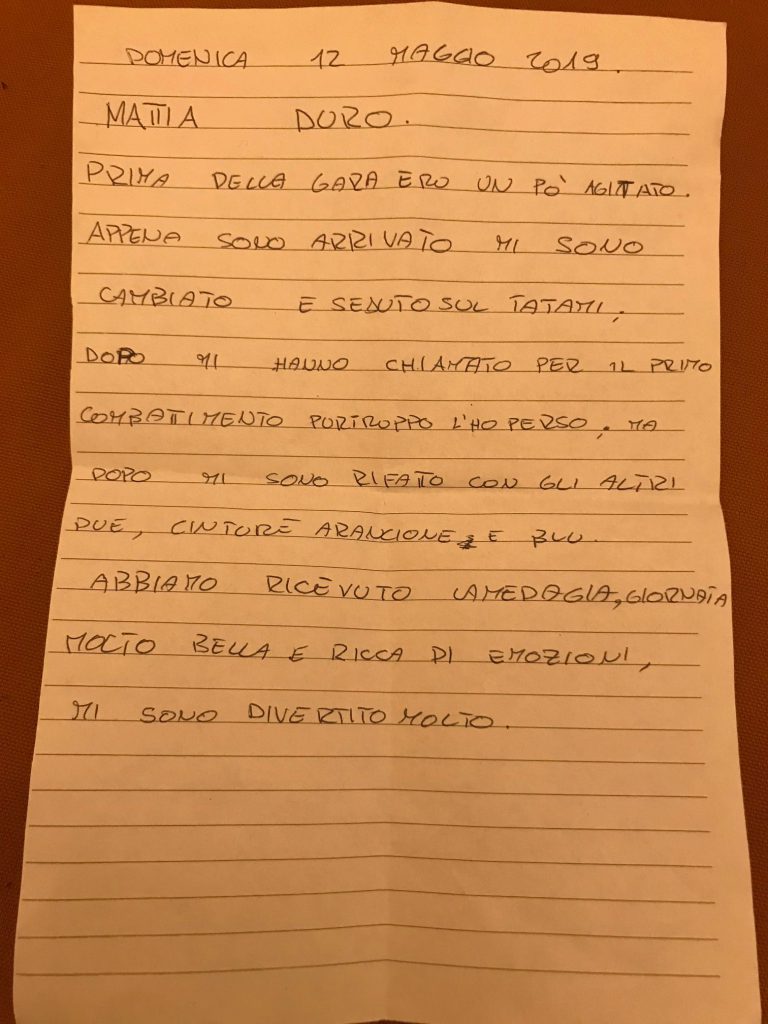 DOMENICA 12 MAGGIO 2019.
MATTIA DURO.
PRIMA DELLA GARA ERO UN PÒ AGITTATO.
APPENA SONO ARRIVATO MI SONO
CAMBIATO E SEDUTO SUL TATAMI,
DOPO MI HANNO CHIAMATO PER IL PRIMO
COMBATTIMENTO PURTROPPO L'HO PERSO, MA
DOPO MI SONO RIFATTO CON GLI ALTRI
DUE, CINTURE ARANCIONE E BLU.
ABBIAMO RICEVUTO LA MEDAGLIA, GIORNATA
MOLTO BELLA E RICCA DI EMOZIONI,
MI SONO DIVERTITO MOLTO.